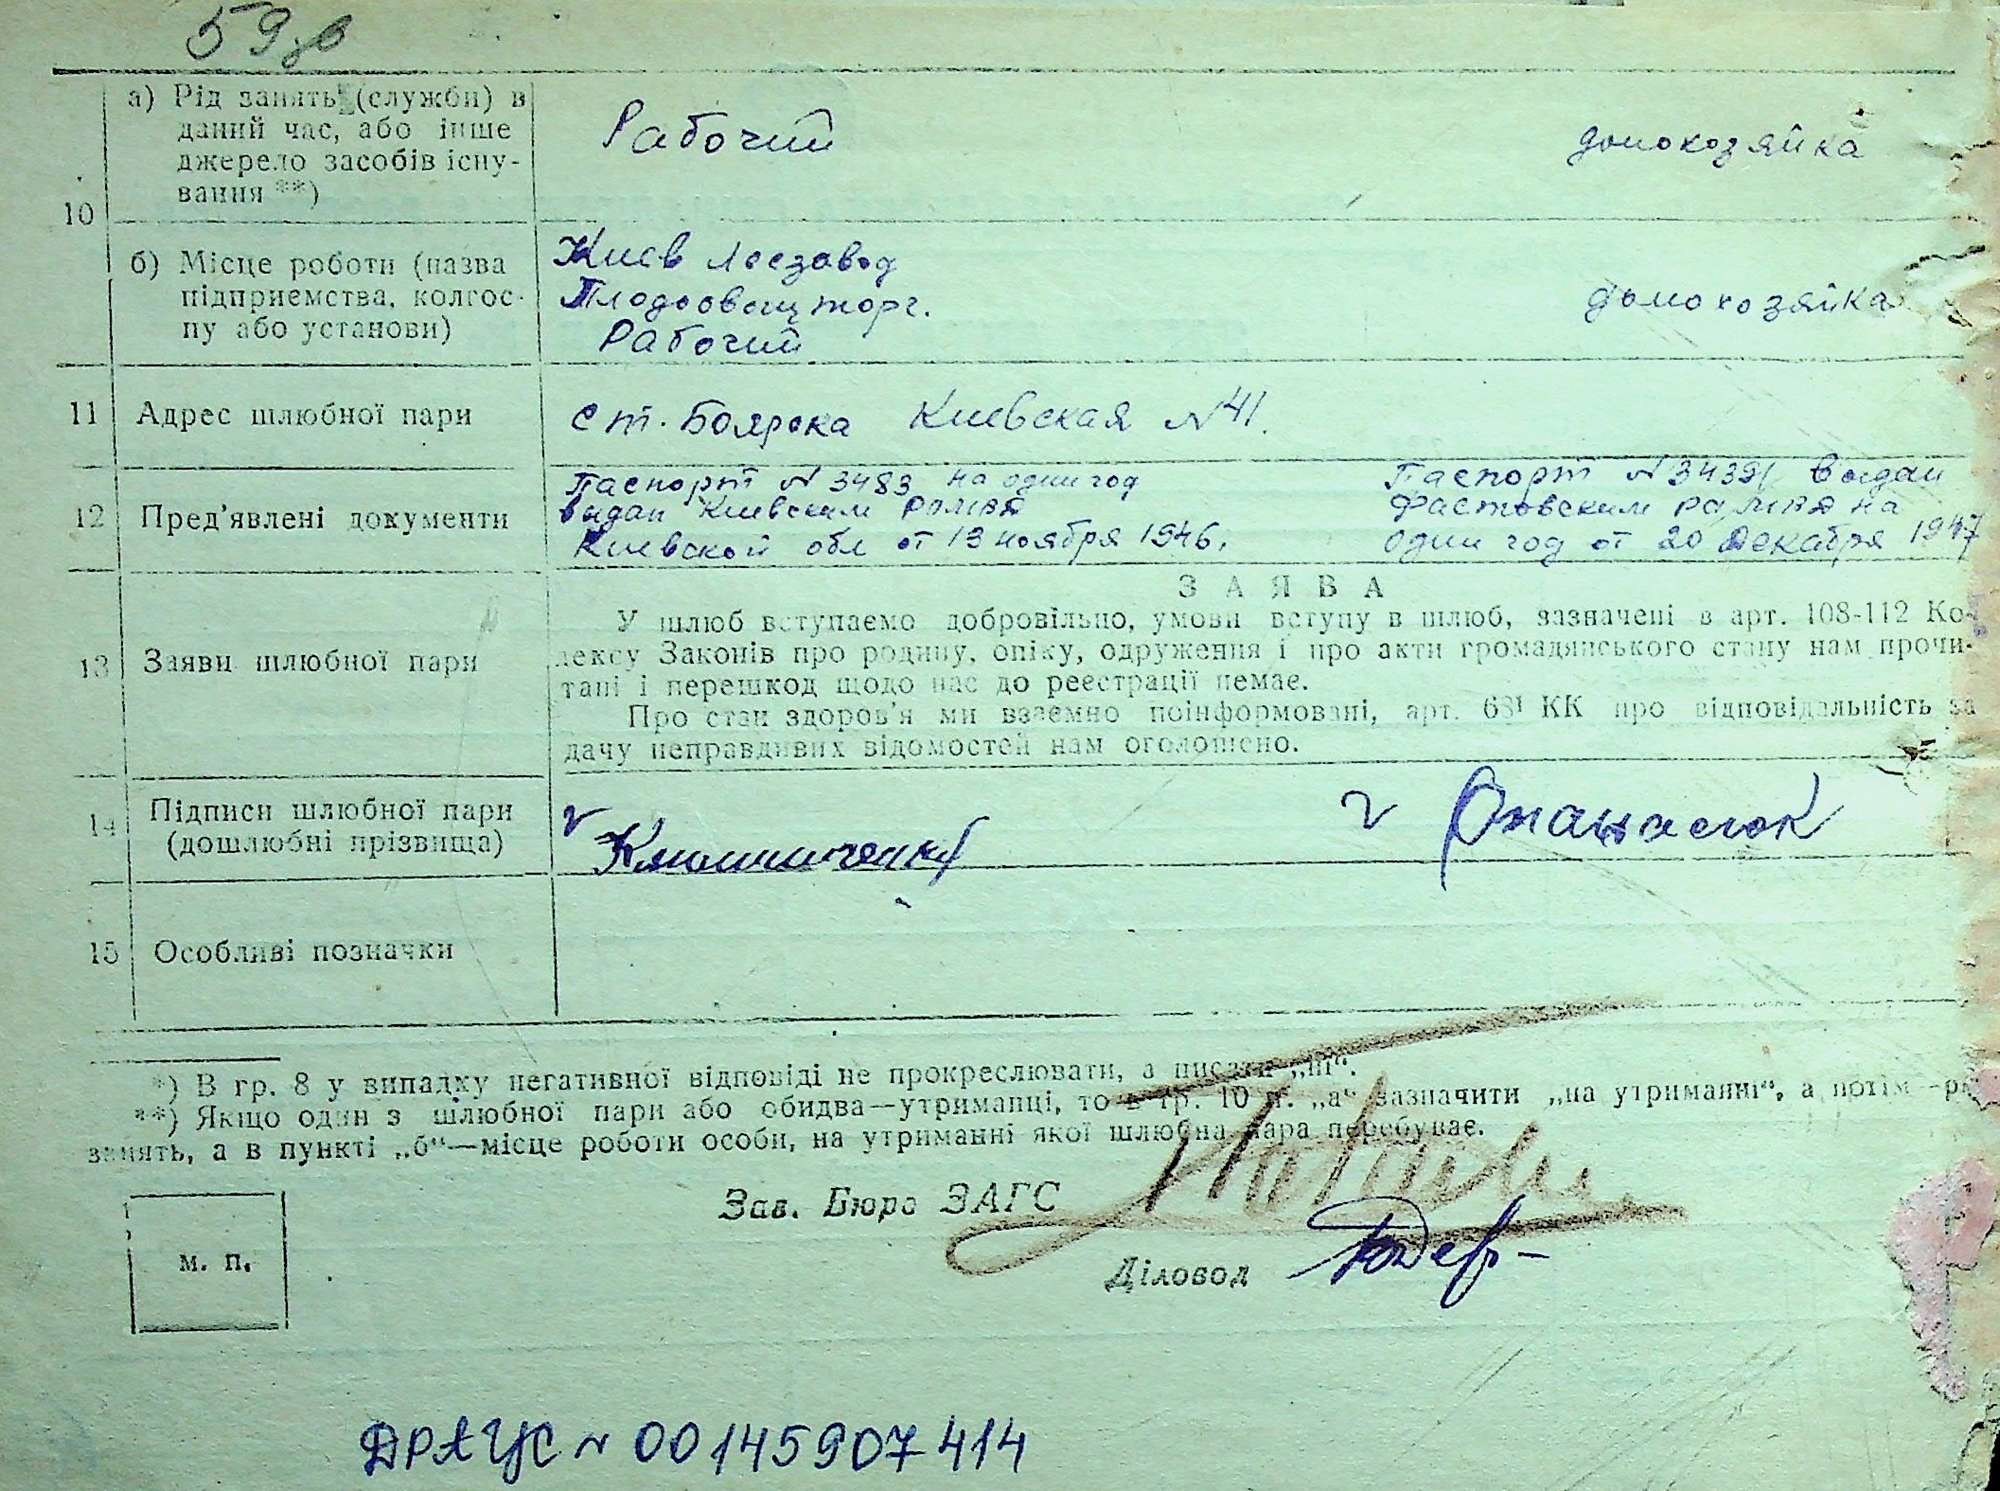 59
10
а) Рід занять (служби) в
даний час, або інше
джерело засобів існу-
вання **)
Рабочий
домохозяйка
б) Місце роботи (назва
підприємства, колгос-
пу або установи)
Киев лесзавод
Плодоовощторг.
Рабочий
домохозяйка
11 Адрес шлюбної пари
ст. Боярска Киевская №41.
12 Пред'явлені документи
Паспорт № 3483 на один год
выдан Киевским
Киевской обл от 13 ноября 1946.
Паспорт № 34391 выдан
Фастовским на
один год от 20 декабря 1947
13 Заяви шлюбної пари
ЗАЯВА
У шлюб вступаємо добровільно, умови вступу в шлюб, зазначені в арт. 108-112 Ко-
дексу Законів про родину, опіку, одруження і про акти громадянського стану нам прочи-
тані і перешкод щодо нас до реєстрації немає.
Про стан здоров'я ми взаємно поінформовані, арт. 68¹ КК про відповідальність за
дачу неправдивих відомостей нам оголошено.
14 Підписи шлюбної пари
(дошлюбні прізвища)
15 Особливі позначки
*) В гр. 8 у випадку негативної відповіді не прокреслювати, а писати „ні“.
**) Якщо один з шлюбної пари або обидва—утриманці, то в гр. 10 п. „а“ зазначити „на утриманні“, а потім—рід
занять, а в пункті „б“—місце роботи особи, на утриманні якої шлюбна пара перебуває.
Зав. Бюро ЗАГС
Діловод
м. п.
ДРАЦС № 00145907414